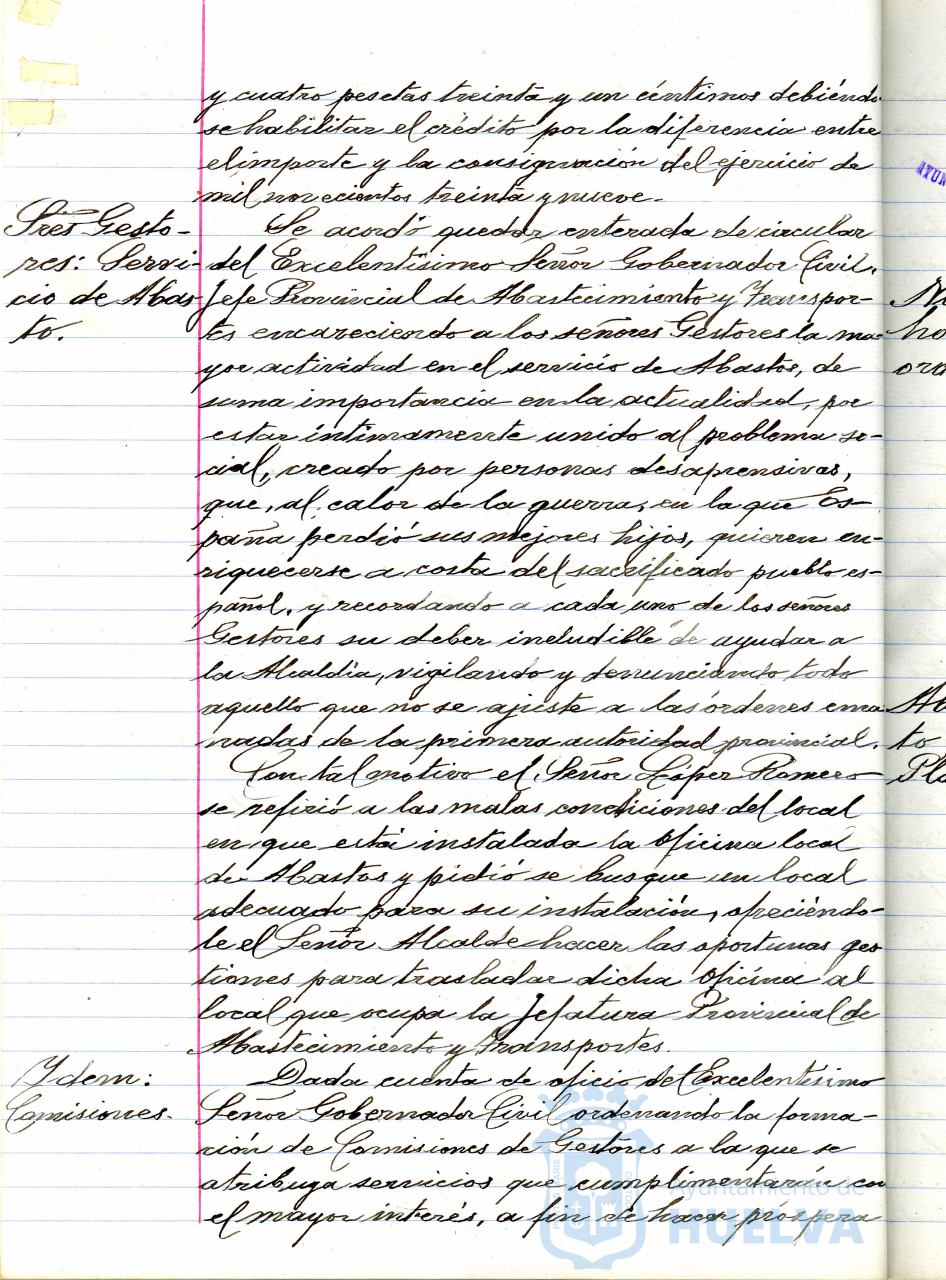 y cuatro pesetas treinta y un céntimos debiéndo
se habilitar el crédito por la diferencia entre
el importe y la consignación del ejercicio de
mil novecientos treinta y nueve.
Sres Gesto-
res: Servi-
cio de Abas
to.
Se acordó quedar enterada de circular
del Excelentísimo Señor Gobernador Civil,
Jefe Provincial de Abastecimiento y Transpor-
tes encareciendo a los señores Gestores la ma-
yor actividad en el servicio de Abastos, de
suma importancia en la actualidad, por
estar íntimamente unido al problema so-
cial, creado por personas desaprensivas,
que, al calor de la guerra, en la que Es-
paña perdió sus mejores hijos, quieren en-
riquecerse a costa del sacrificado pueblo es-
pañol, y recordando a cada uno de los señores
Gestores su deber ineludible de ayudar a
la Alcaldía, vigilando y denunciando todo
aquello que no se ajuste a las órdenes ema
nadas de la primera autoridad provincial.
Con tal motivo el Señor López Romero
se refirió a las malas condiciones del local
en que está instalada la oficina local
de Abastos y pidió se busque un local
adecuado para su instalación, ofreciéndo-
le el Señor Alcalde hacer las oportunas ges
tiones para trasladar dicha oficina al
local que ocupa la Jefatura Provincial de
Abastecimiento y Transportes.
Ydem:
Comisiones.
Dada cuenta de oficio del Excelentísimo
Señor Gobernador Civil ordenando la forma-
ción de Comisiones de Gestores a la que se
atribuya servicios que cumplimentarán con
el mayor interés, a fin de hacer próspera
Ayuntamiento de
HUELVA